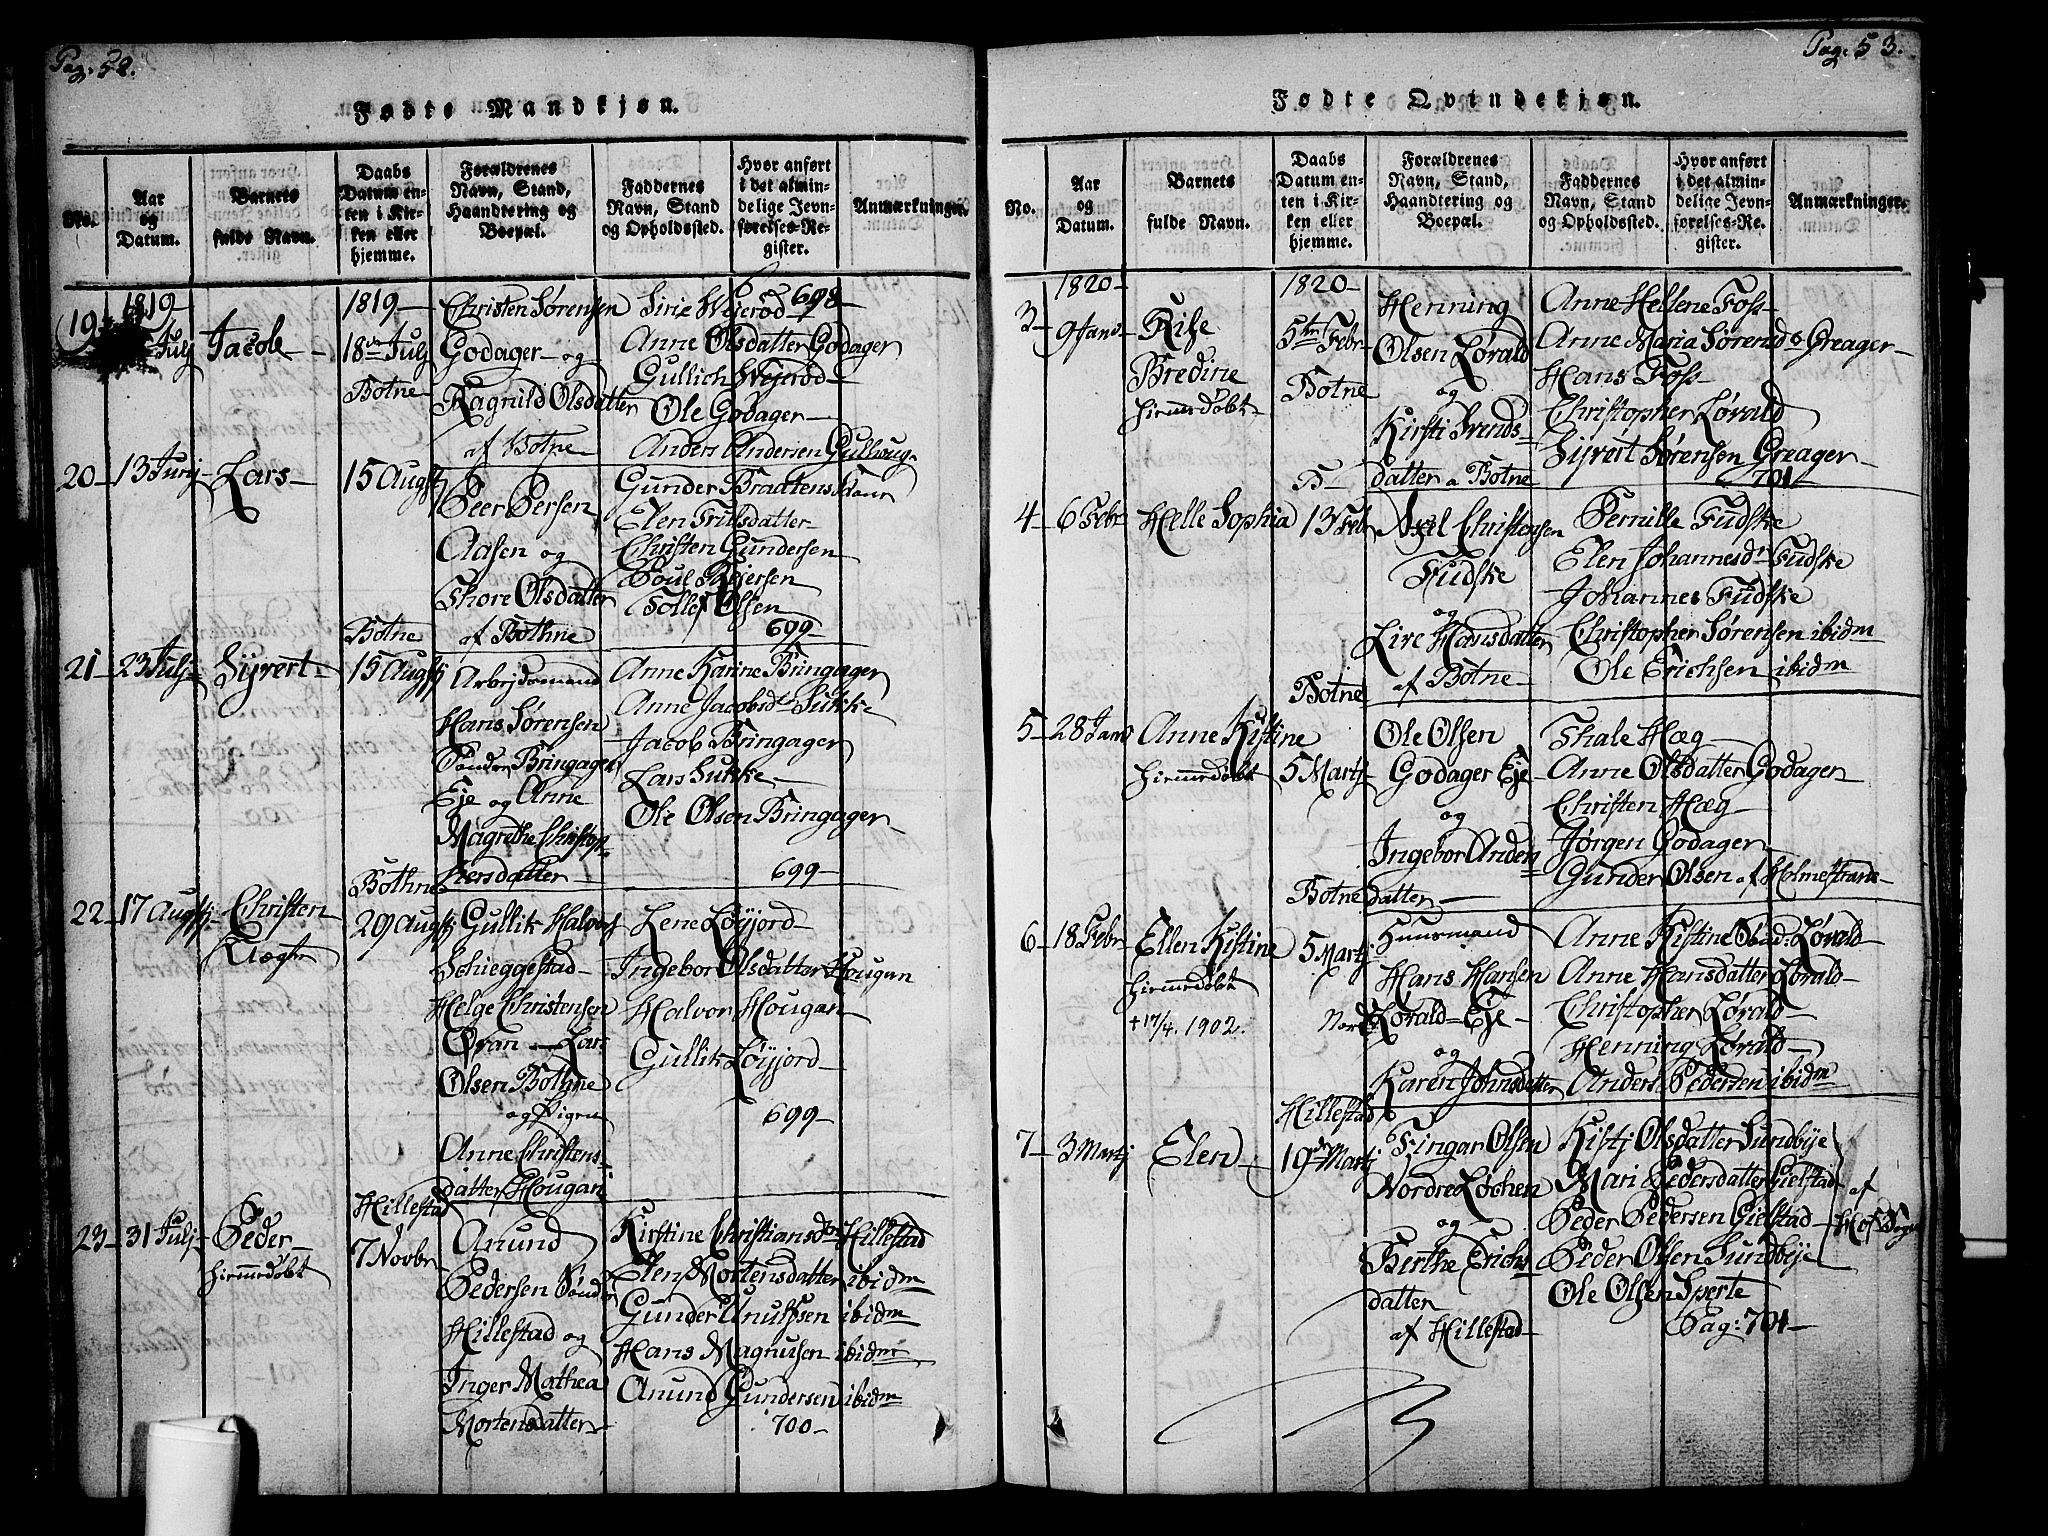 Pag: 52.
Fødte Mandkjøn.
No.
Aar og Datum.
Barnets fulde Navn.
Daabs Datum enten i Kirken eller hjemme.
Forældrenes Navn, Stand, Haandtering og Boepæl.
Faddernes Navn, Stand og Opholdssted.
Hvor anført i det almindelige Jevnførelses-Register.
Anmærkninger.
19
1819
Julj
Jacob
1819
18de Julj
Botne
Christen Sørensen
Godager og
Ragnild Olsdatter
af Botne
Anne Olsdatter Godager
Gullich Wejerød
Ole Godager
Anders Andersen Gullaug
698
20
13 Junj
Lars
15 Augstj
Botne
Peer Persen
Aasen og
Thore Olsdatter
af Bothne
Gunder Braatens
Elen
Christen Gundersen
Poul
Tollef Olsen
699
21
23 Julj
Syvert
15 Augstj
Bothne
Arbejdsmand
Hans Sørensen
Sønder Bringager
Eje og Anne
Magrethe Christop-
hersdatter
Anne Karine Bringager
Anne Jacobsdr Sukke
Jacob Bringager
Lars Sukke
Ole Olsen Bringager
699
22
17 Augstj
Christen
29 Augstj
Hillestad
Gullik Halvors
Schieggestad
Helge Christensen
Lars
Olsen Bothne
og Pigen
Anne Christens-
datter Hougan
Lene Løyjord
Ingebor Olsdatter Hougan
Halvor Hougan
Gullik Løyjord
699
23
31 Julj
Peder
hiemmedøbt
7 Novbr
Anund
Pedersen Sønder
Hillestad og
Inger Mathea
Mortensdatter
Kirstine Christiansdr Hillestad
Elen Mortensdatter ibidm
Gunder Knutsen ibidm
Hans Magnusen ibidm
Anund Gundersen ibidm
700
Pag: 53.
Fødte Qvindekjøn.
No.
Aar og Datum.
Barnets fulde Navn.
Daabs Datum enten i Kirken eller hjemme.
Forældrenes Navn, Stand, Haandtering og Boepæl.
Faddernes Navn, Stand og Opholdssted.
Hvor anført i det almindelige Jevnførelses-Register.
Anmærkninger.
3
1820
9 Janr
Bredine
hiemmedøbt
1820
5te Febr
Botne
Henning
Olsen Lørald
og
Kirsti Svends-
datter a Botne
Anne Hellene Foss
Anne Maria Sørensd Greager
Hans Foss
Christopher Lørald
Syvert Sørensen Greager
701
4
6 Febr
Helle Sophia
13 Febr
Botne
Axel Christensen
Fudske
og
Sire Hansdatter
af Botne
Pernille Fudske
Elen Johannesdr Fudske
Johannes Fudske
Christopher Sørensen ibidm
Ole Erichsen ibidm
5
28 Janr
Anne Kistine
hiemmedøbt
5 Martj
Botne
Ole Olsen
Godager Eje
og
Ingebor Anders
datter
Thale Hæg
Anne Olsdatter Godager
Christen Hæg
Jørgen Godager
Gunder Olsen af Holmestrand
6
18 Febr
Ellen Kistine
hiemmedøbt
+ 17/4. 1902.
5 Martj
Hillestad
Huusmand
Hans Hansen
Lørald Eje
og
Karen Johnsdatter
Anne Kistine Lørald
Anne Hansdatter Lørald
Christopher Lørald
Henning Lørald
Anders Pedersen ibidm
7
3 Martj
Elen
19de Martj
Fingar Olsen
Nordre Løchen
og
Berthe Erichs
datter
af Hillestad
Kistj Olsdatter Sundbye
Mari Pedersdatter Gielstad
Peder Pedersen Gielstad
Peder Olsen Sundbye
Ole Olsen Sperte
af
Hof Sogn
Pag: 701